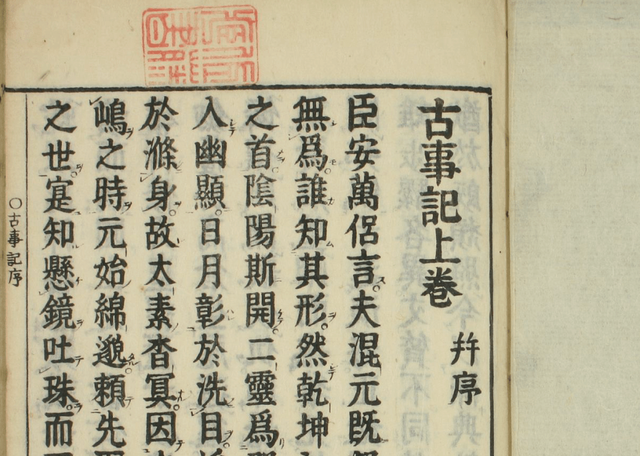 古事記上卷
幷序
臣安萬侶言夫混元既
無爲誰知其形然乾坤
之首陰陽斯開二靈爲
入幽顯日月彰於洗目
於滌身故太素杳冥因
嶋之時元始綿邈頼先
之世寔知懸鏡吐珠而
〇古事記序